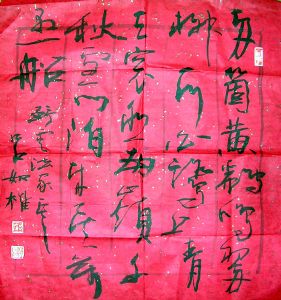 两箇黄鹂鸣翠
柳一行白鹭上青
天窗含西嶺千
秋雪门泊东吴萬
里船